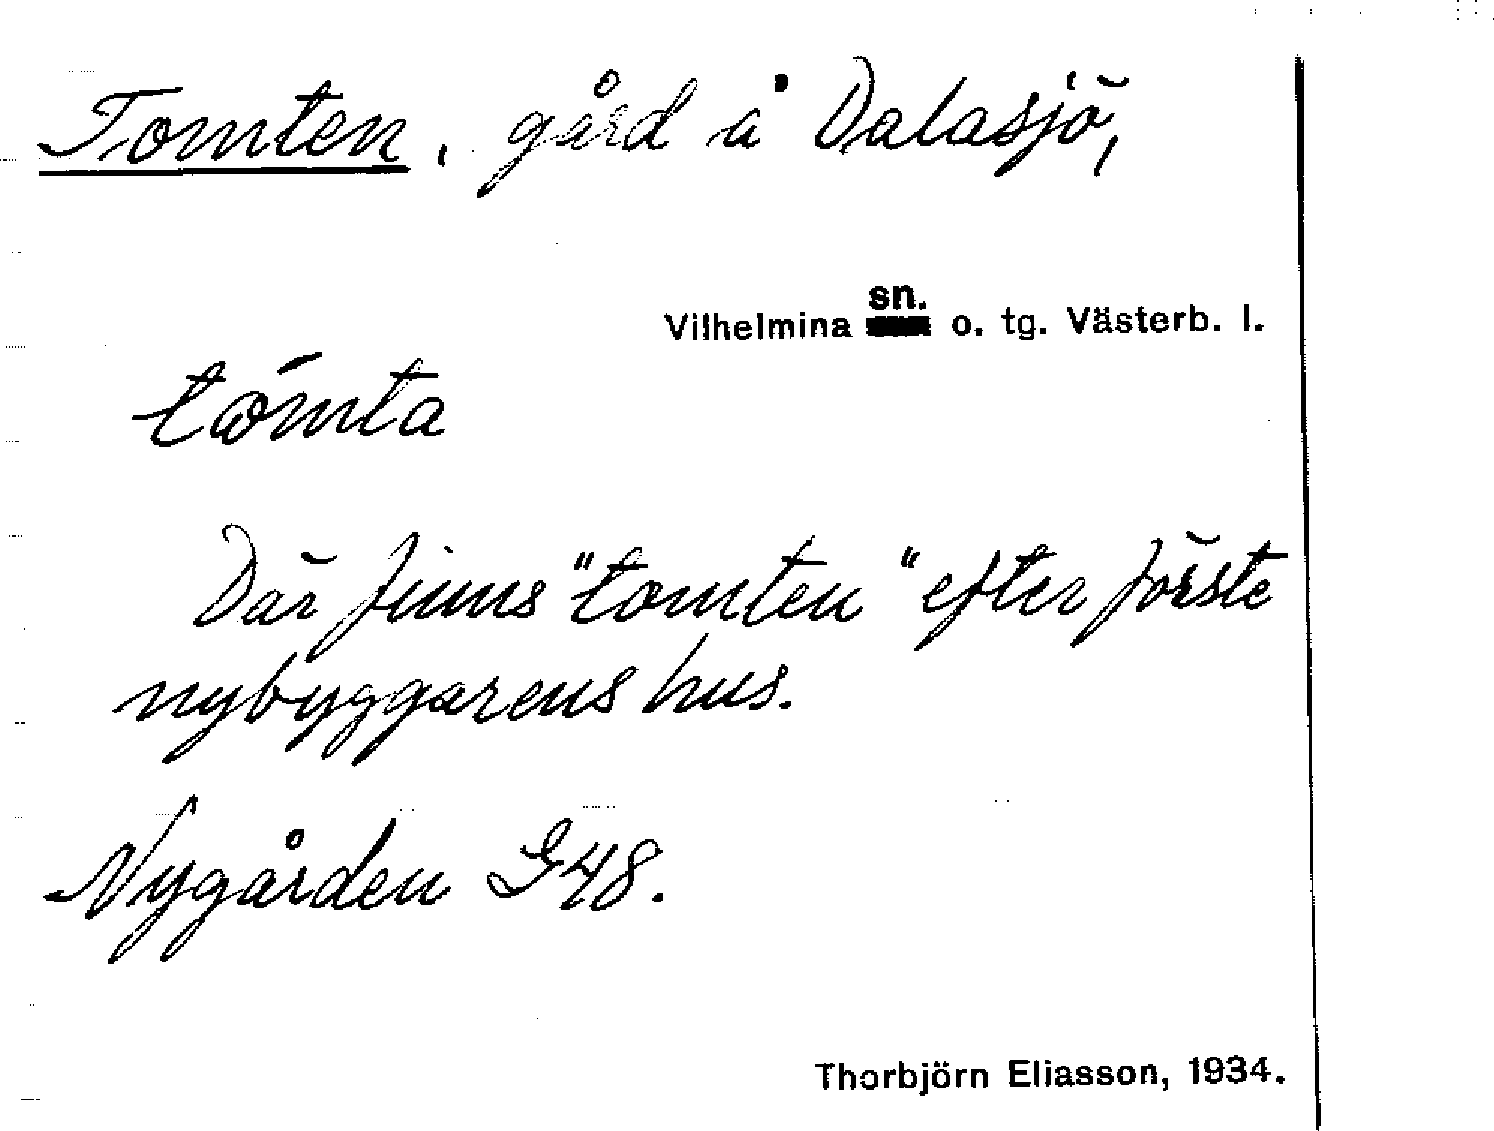 Tomten, gård å Dalasjö,
sn.
Vilhelmina o. tg. Västerb. l.
tómta
Där finns "tomten" efter förste
nybyggarens hus.
Nygården G48.
Thorbjörn Eliasson, 1934.